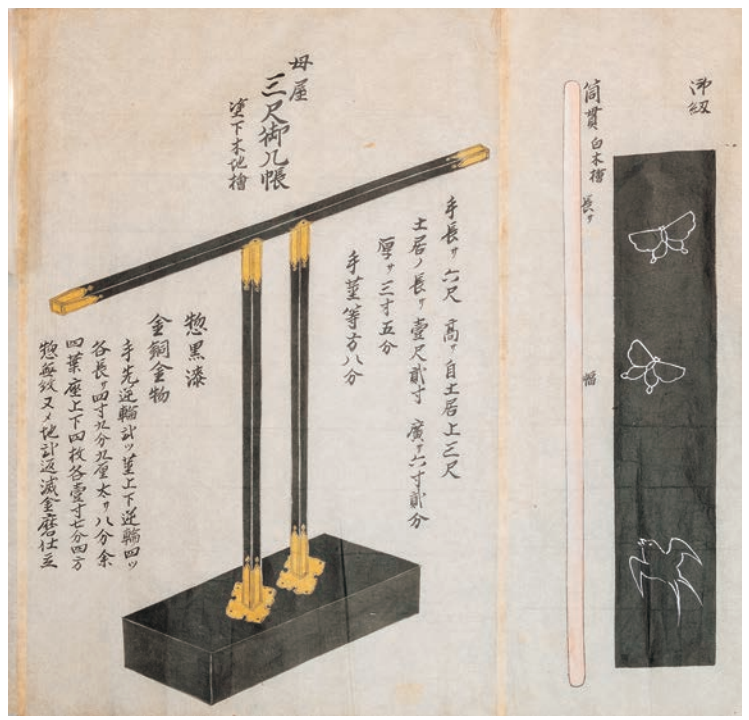 御紐
筒貫 白木檜 長サ
幅
母屋
三尺御几帳
塗下木地檜
手長サ六尺 高サ自土居上三尺
土居ノ長サ壹尺貳寸 廣サ六寸貳分
厚サ三寸五分
手莖等方八分
惣黒漆
金銅金物
手先逆輪計ツ莖上下逆輪四ツ
各長サ四寸九分九厘太サ八分余
四葉座上下四枚各壹寸七分四方
惣無紋又〆地計返滅金磨仕立